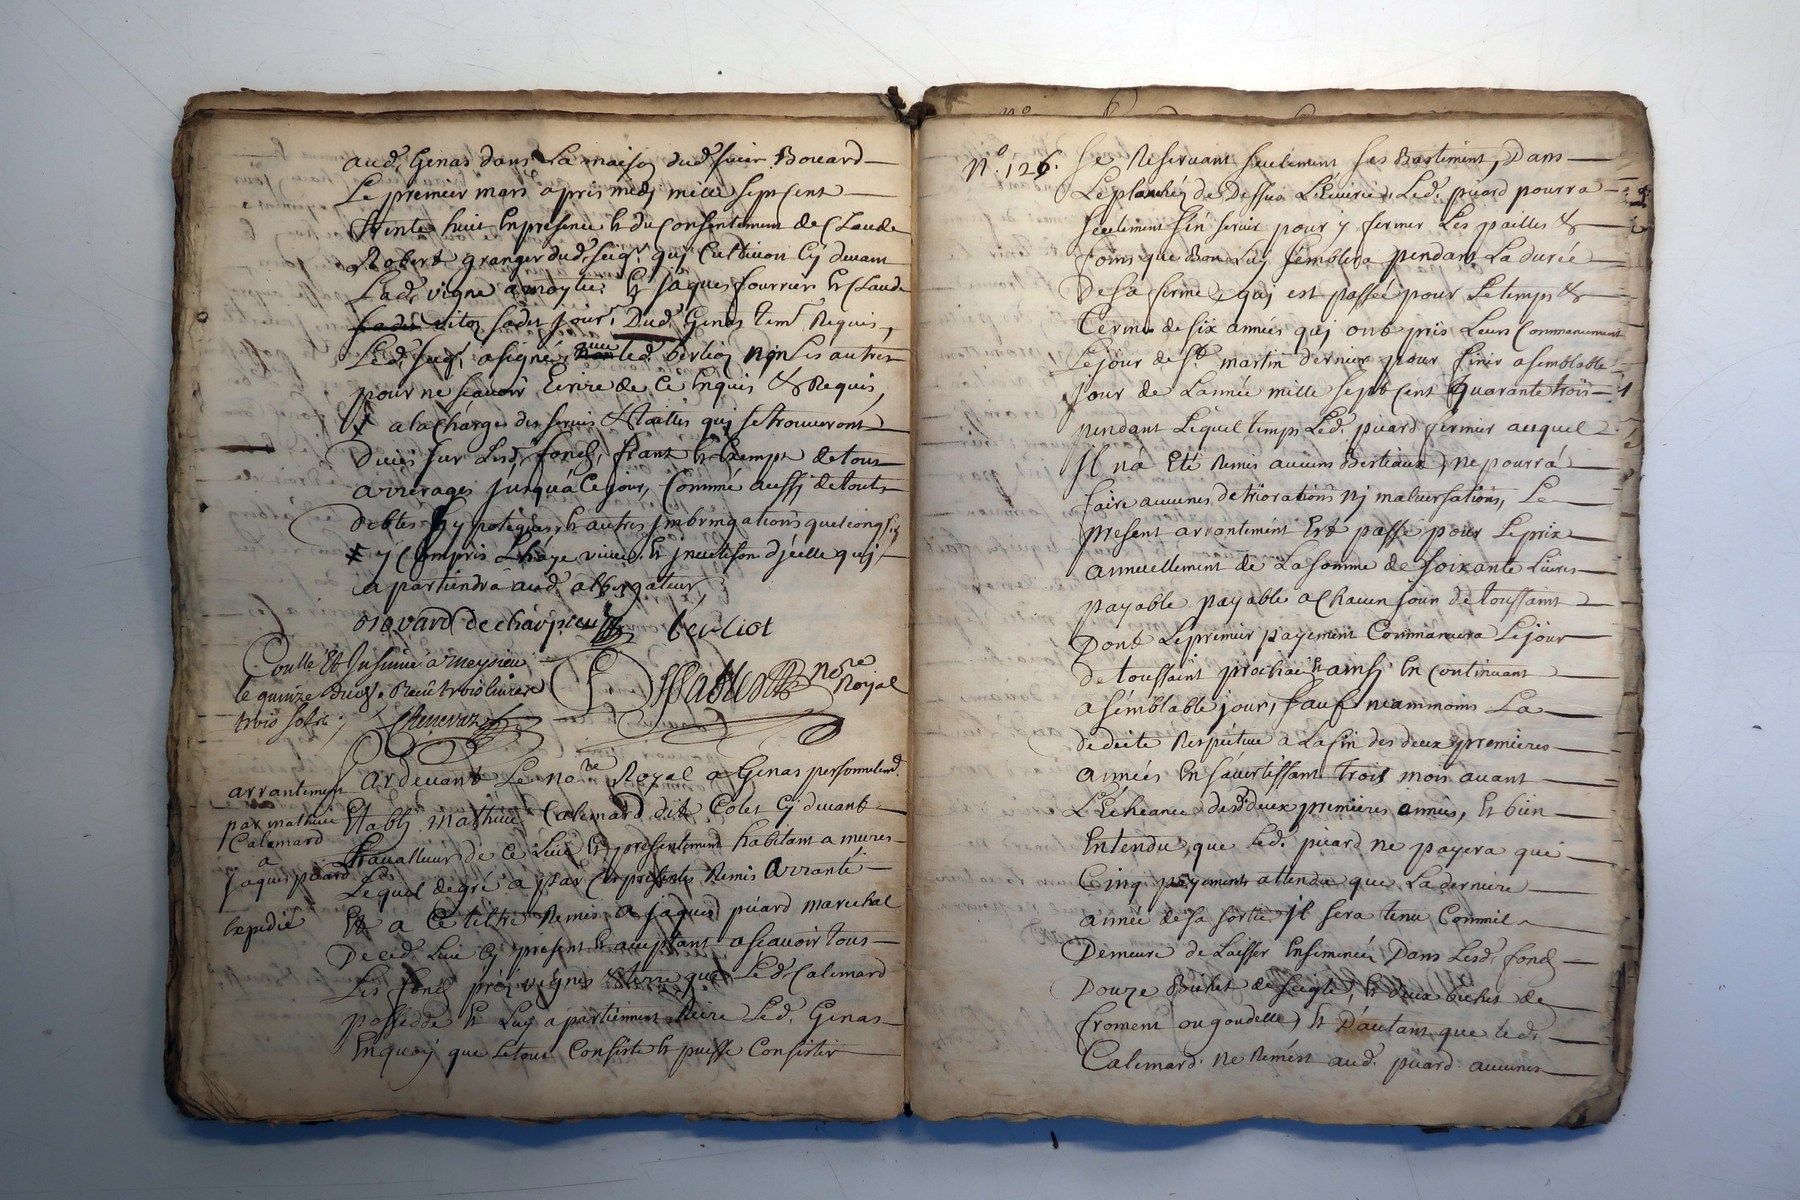 aud. Genas dans La maison dud. sieur Bovard
Le premier mars apres midy mille sept cent
trente huit En presence Et du Consentement de Claude
Robert granger dud. seigr. quj Cultivoit Cy devant
Lad. vigne a moytié, Et jaques fourrier Et Claude
dud. Genas tem. Requis,
Led. sieur a signé, Led. berlioz non Les autres
pour ne sçavoir Ecrire de Ce Enquis & Requis,
a la Charges des servis & tailles quj se trouveront
Dues sur Lesd. fonds, franc Et Exempt de tous
arrerages jusqu'à Ce jour, Comme aussj de touts
debtes hypoteques, Et autres
y Compris L'haye vive, Et d'jcelle quj
apartiendra aud. albergateur,
bovard de charpieu berliot
Coulle Et Insinué a meyzieu
le quinze Reçu trois livres
trois sols.
nore Royal
arrantement
par mathieu
Calemard
a
jaques picard
Expedié
Pardevant Le nore. Royal a Genas personnelemt.
Etably mathieu Calemard dit Colet Cy devant
travailleur de Ce Lieu Et presentement habitant a mures
Lequel de gré a par Ces presentes Remis arranté
Et a Ce tiltre Remes a jaques picard marechal
De Ced. Lieu Cy present Et acceptant a sçavoir tous
Les fonds prés vignes & terre que Led. Calemard
possedde Et Luy apartiennent Riere Led. Genas
En quoy que Le tout Consiste Et puisse Consister
No. 126. se Reservant seulement ses Bastiment, Dans
Le planchéz de Dessus L'Ecuirie, Led. picard pourra
seulement s'en servir pour y fermer Les pailles &
foins que Bon Luy semblera pendant La durée
De sa ferme, quj est passée pour Le temps &
terme de six années quj ont pris Leurs Commancement
Le jour de St. martin dernier pour finir a semblable
jour de L'année mille sept cent quarante trois
pendant Lequel temps Led. picard fermier auquel
Jl n'a Eté Remis aucuns Bestiaux, ne pourra
faire aucunes deteriorations nj malversations, Le
present arrantement Est passé pour Le prix
annuellement de La somme de soixante Livres
payable payable a Chacun jour de toussaint
Dont Le premier payement Commancera Le jour
de toussaint prochain Et ainsj En Continuant
a semblable jour, sauf neammoins La
dedeite Respective a La fin des deux premieres
années En s'avertissant trois mois avant
L'Echeance desd. deux premieres années, Et bien
Entendu, que Led. picard ne payera que
Cinq payements attendu que La derniere
année de sa sortie jl sera tenu Comme
Demeure de Laisser Ensemencé Dans Lesd. fonds
Douze Bichet de seigle, Et deux bichet de
froment ou goudelle, Et D'autant que Led.
Calemard ne Remest aud. picard aucunes